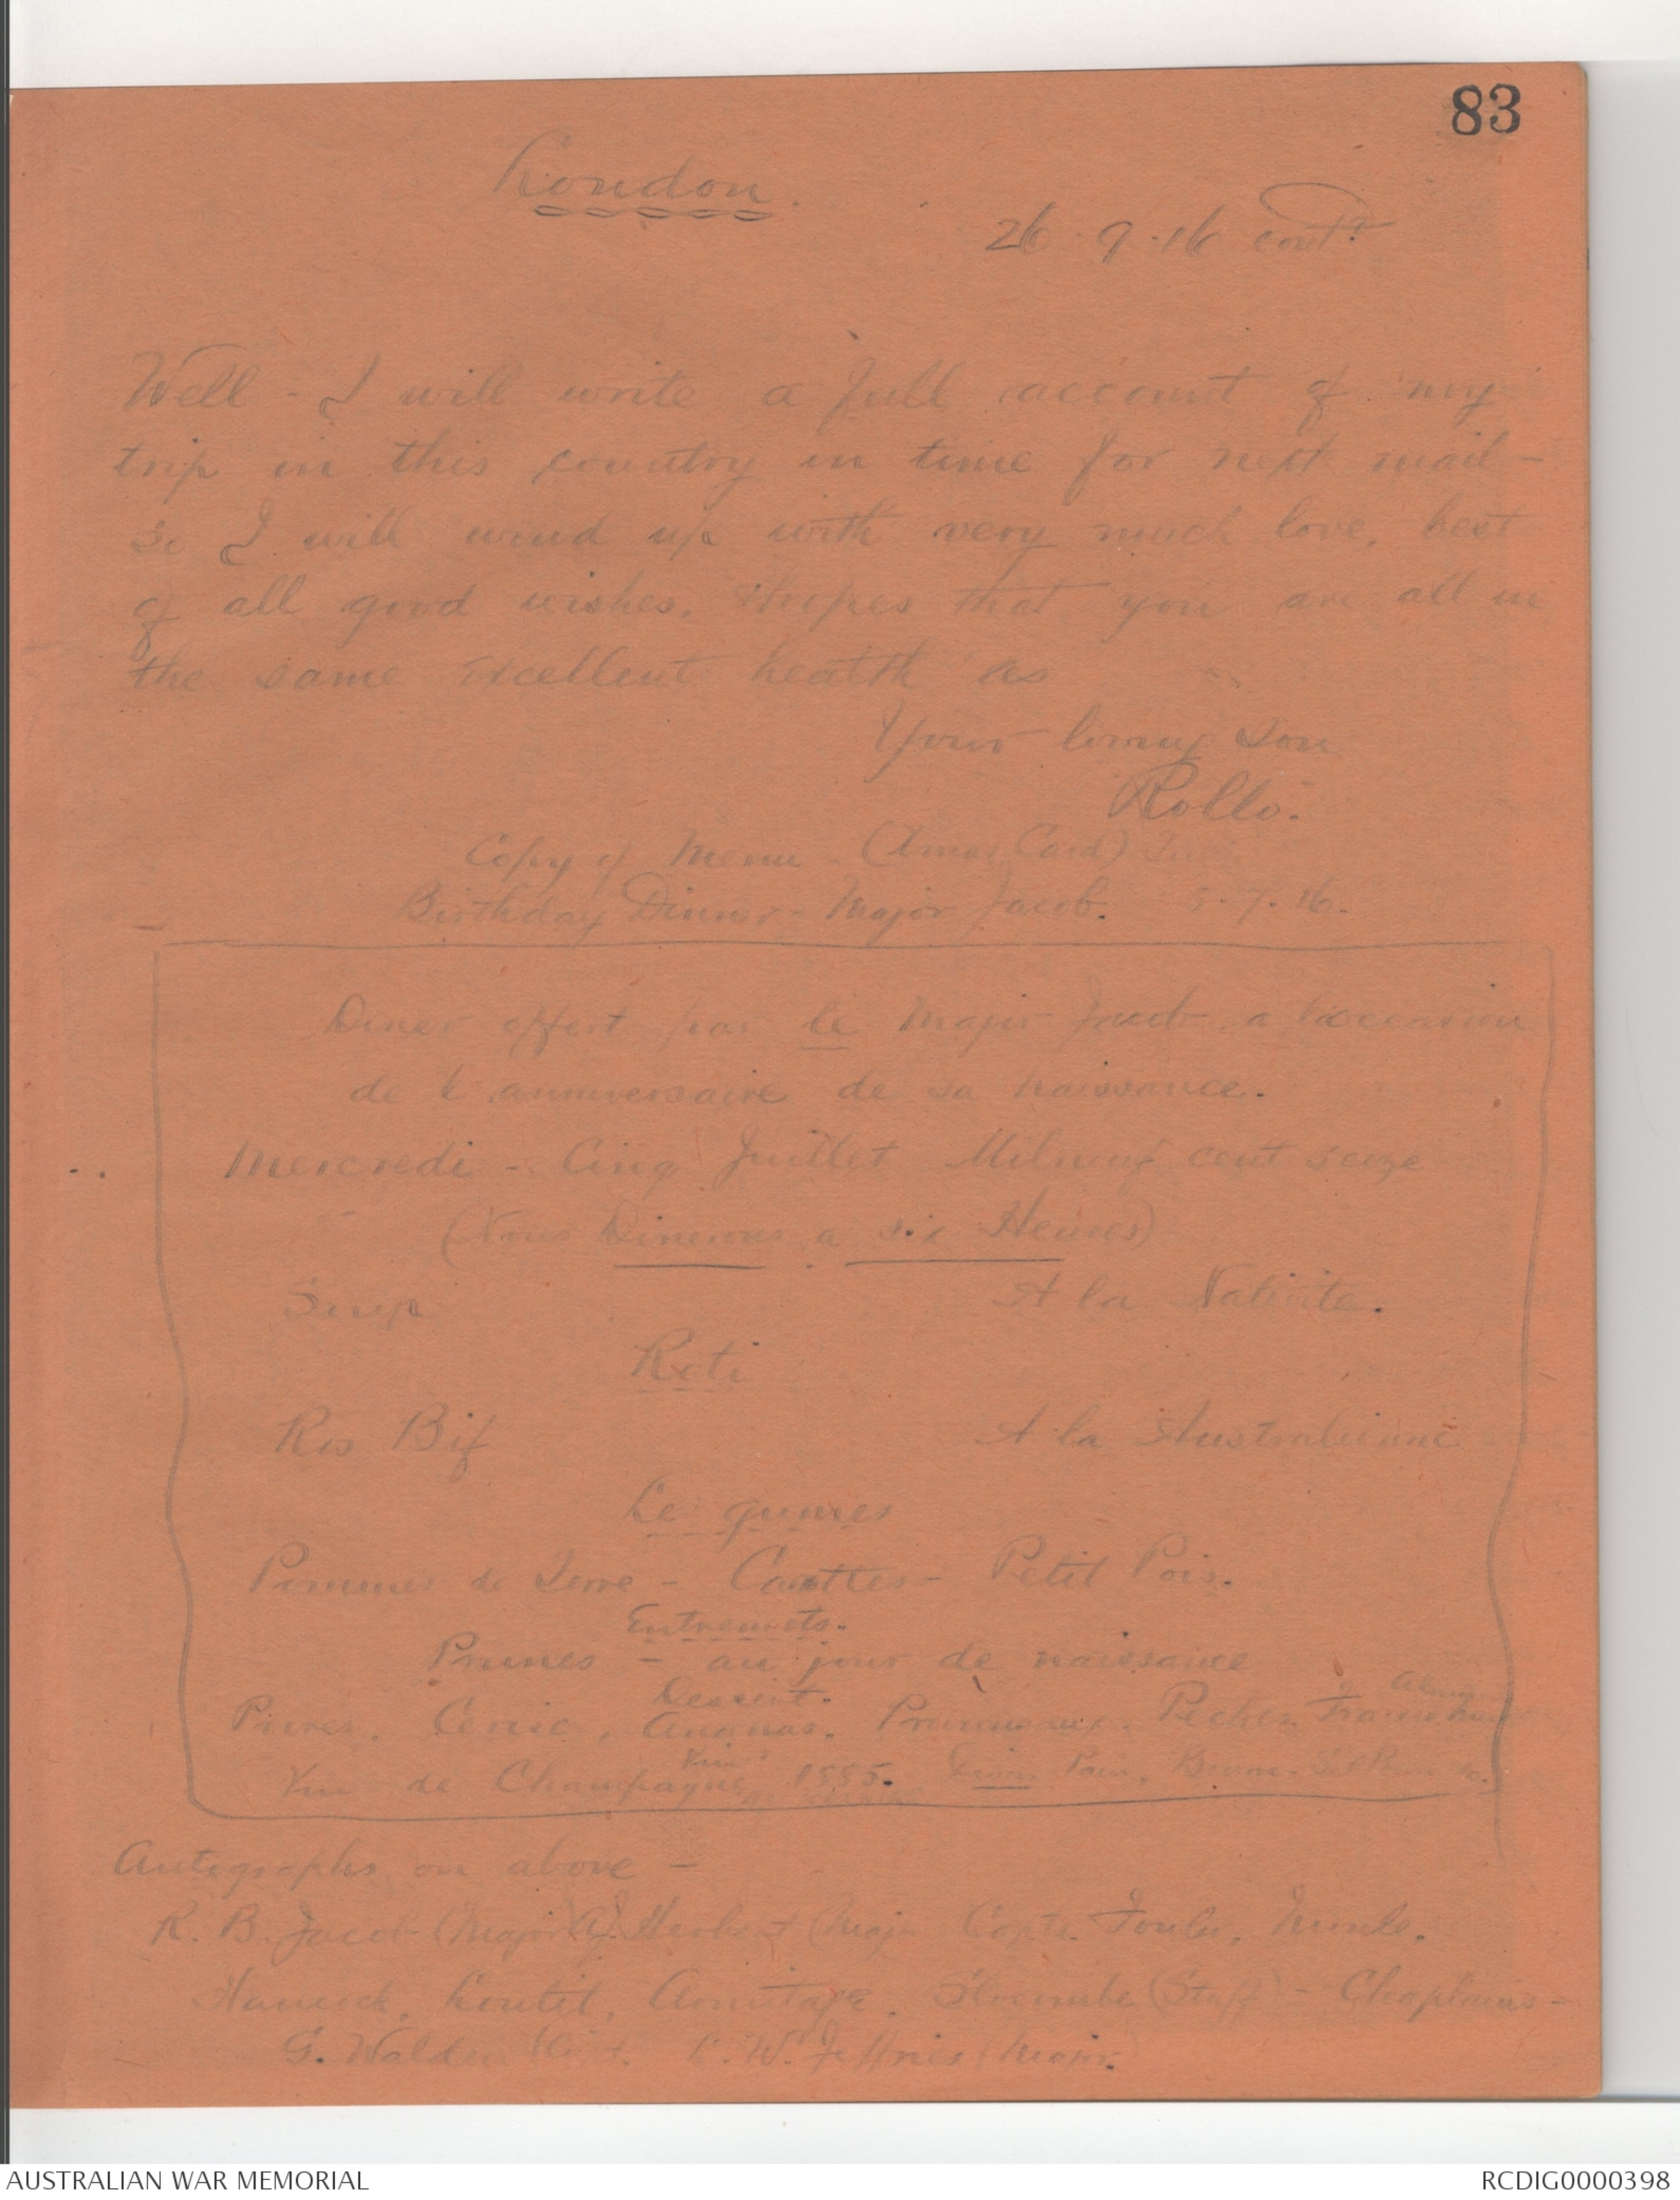 83
London.
26.9.16 contd.
Well - I will write a full account of my
trip in this country in time for next mail -
so I will wind up with very much love, best
of all good wishes. Hopes that you are all in
the same excellent health as
Your loving son
Rollo.
Copy of Menu - (Xmas Card)
Birthday Dinner - Major Jacob. 5.7.16.
Diner offert par le Major Jacob a l'occasion
de l'anniversaire de sa naissance.
Mercredi - Cinq Juillet Milneuf cent seize
(Nous Dinerons a six Heures)
Soup A la Nativite.
Roti
Ros Bif A la Australienne
Le gumes
Pommes de Terre - Carottes - Petit Pois.
Entremets.
Prunes - au jour de naissance
Dessert.
Poires, Cerise, Ananas. Pruneaux. Peches
Vins
Vin de Champagne 1995. Pain,
Autographs on above -
R. B. Jacob (Major) Herbert (Major Capts. Fowler, Nunle,
Hancock, Loutit, Armitage, Slocombe (Staff) - Chaplains -
G. Walden L. W. Jeffries (Major.
AUSTRALIAN WAR MEMORIAL RCDIG0000398